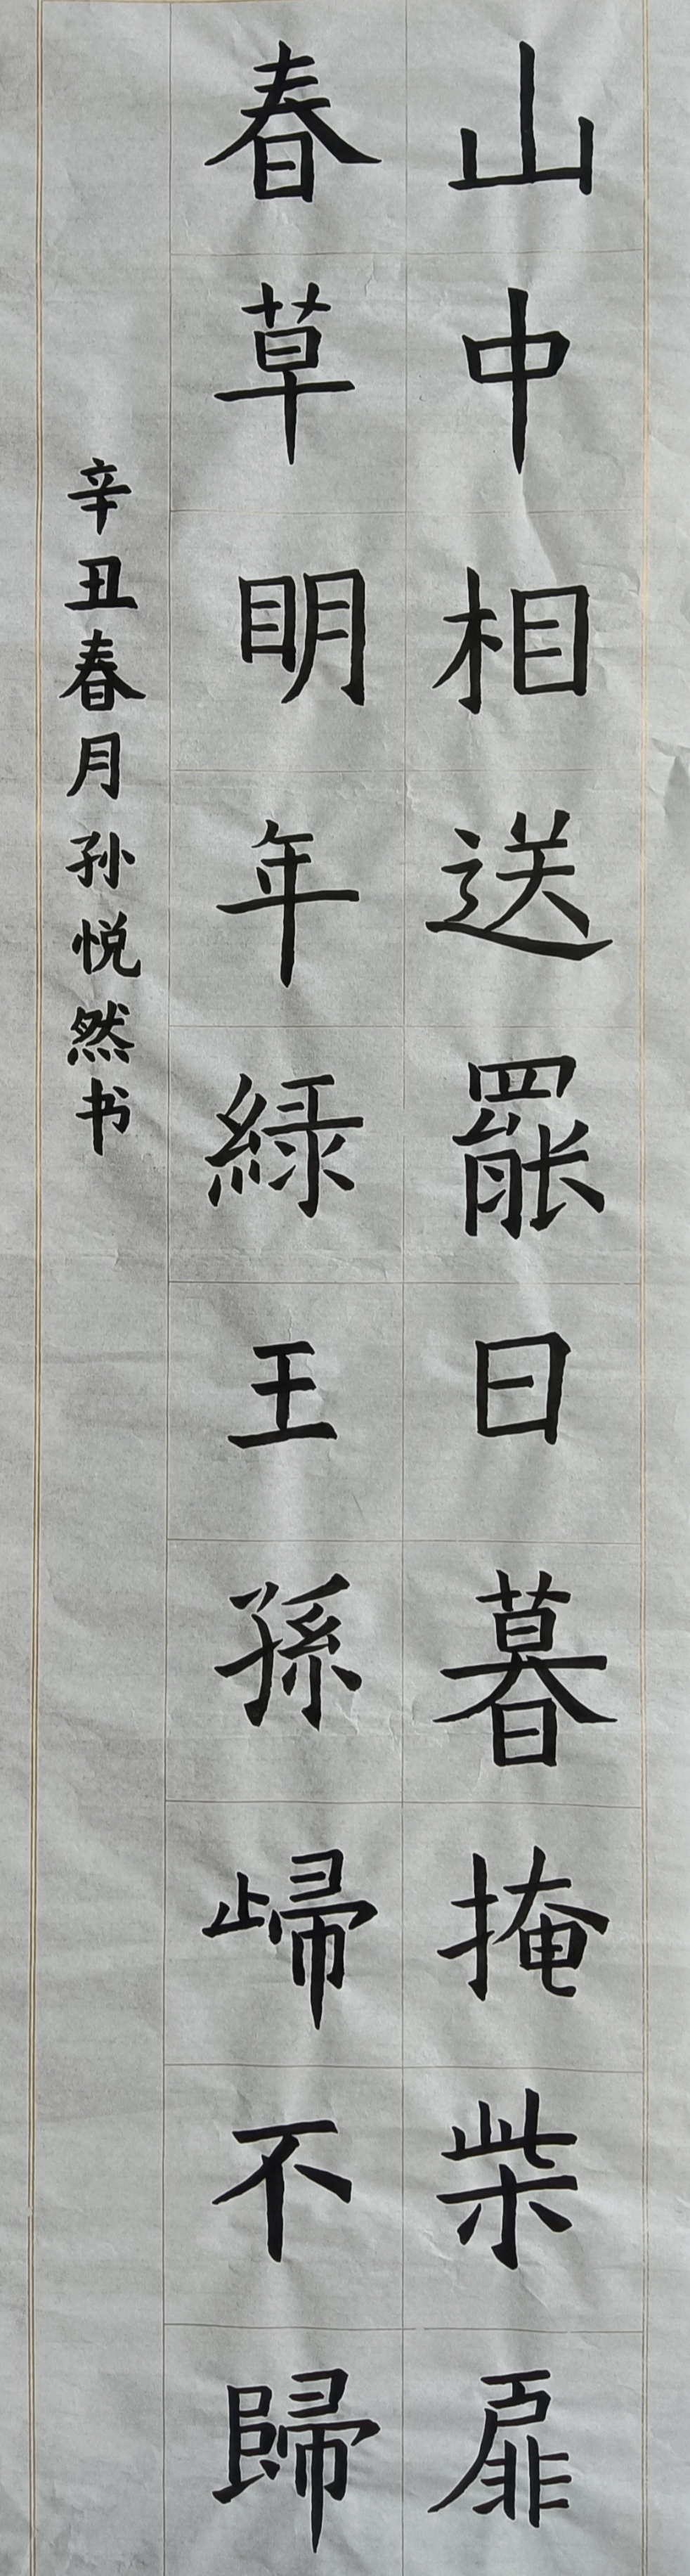 山中相送罷日暮掩柴扉
春草明年緑王孫歸不歸
辛丑春月孙悦然书